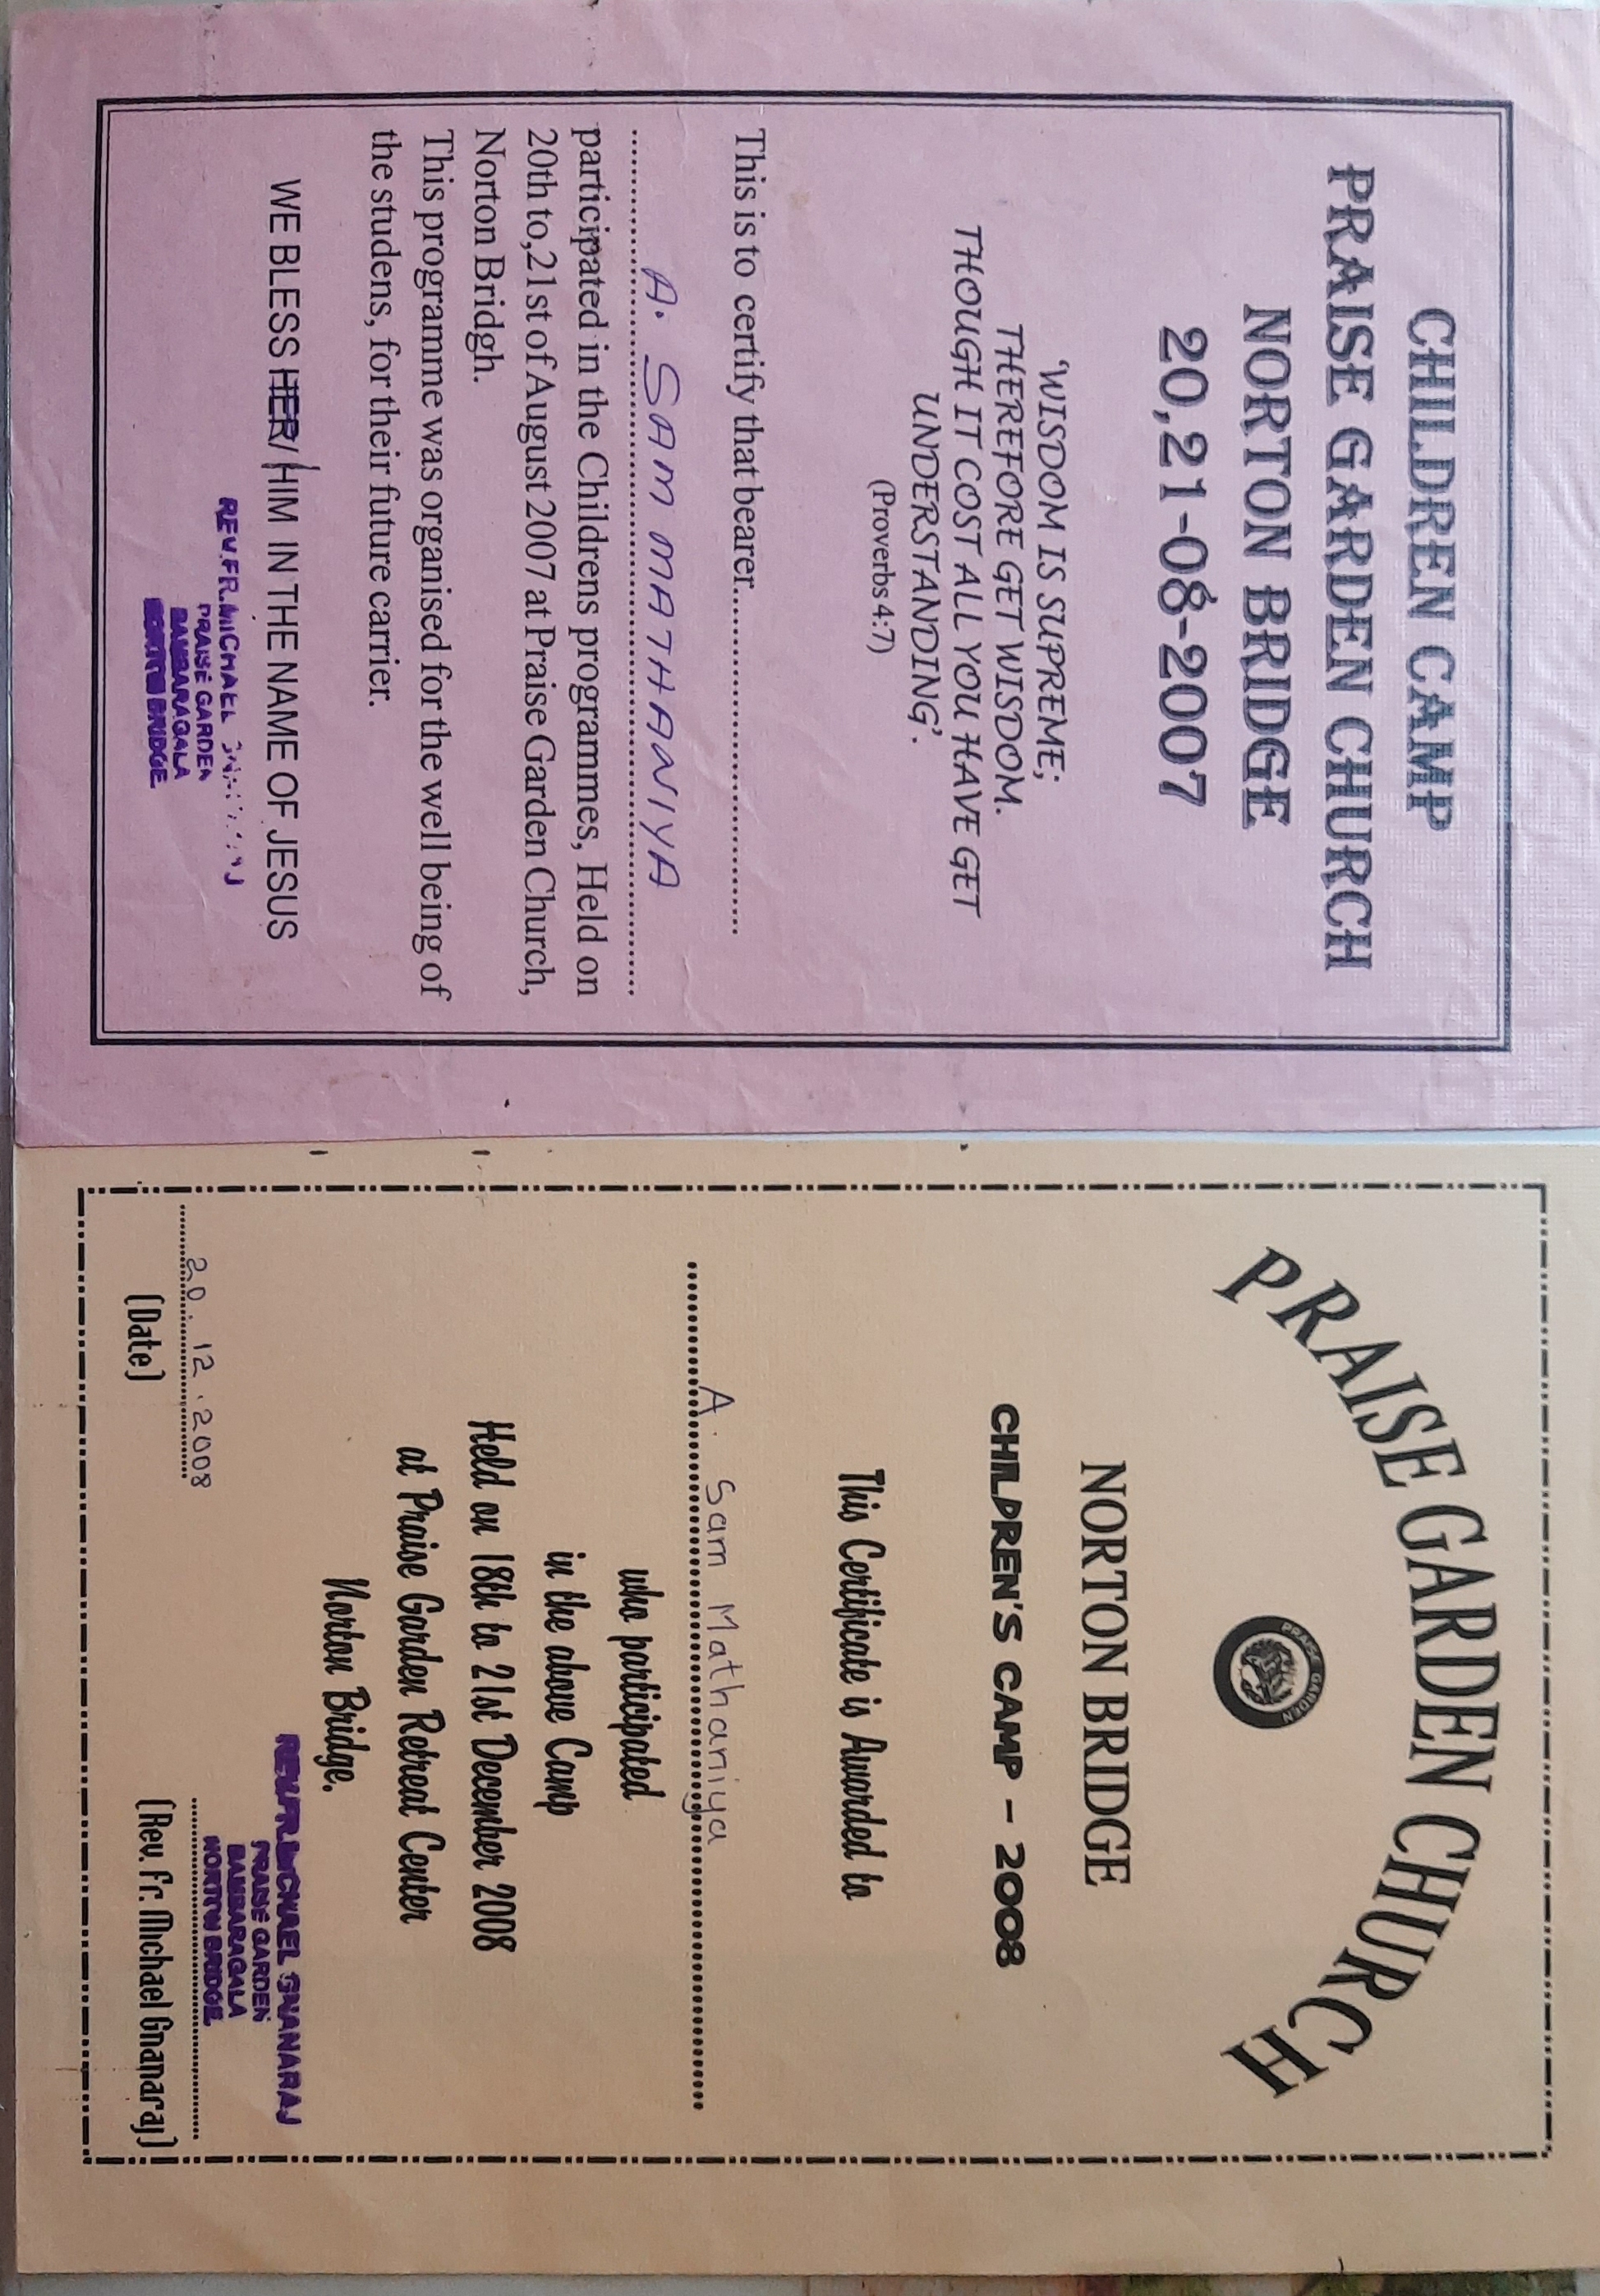 CHILDREN CAMP
PRAISE GARDEN CHURCH
NORTON BRIDGE
20,21-08-2007
‘WISDOM IS SUPREME;
THEREFORE GET WISDOM.
THOUGH IT COST ALL YOU HAVE GET
UNDERSTANDING’.
(Proverbs 4:7)
This is to certify that bearer..................................
A. SAM MATHANIYA
participated in the Childrens programmes, Held on
20th to,21st of August 2007 at Praise Garden Church,
Norton Bridgh.
This programme was organised for the well being of
the studens, for their future carrier.
WE BLESS HER/ HIM IN THE NAME OF JESUS
REV.FR.MICHAEL
PRAISE GARDEN
BAMBARAGALA
NORTON BRIDGE.
PRAISE GARDEN CHURCH
PRAISE GARDEN
NORTON BRIDGE
CHILDREN'S CAMP - 2008
This Certificate is Awarded to
A. Sam Mathaniya
who participated
in the above Camp
Held on 18th to 21st December 2008
at Praise Garden Retreat Center
Norton Bridge.
REV.FR.MICHAEL GNANARAJ
PRAISE GARDEN
BAMBARAGALA
NORTON BRIDGE.
20.12.2008
(Date)
(Rev. Fr. Michael Gnanaraj)